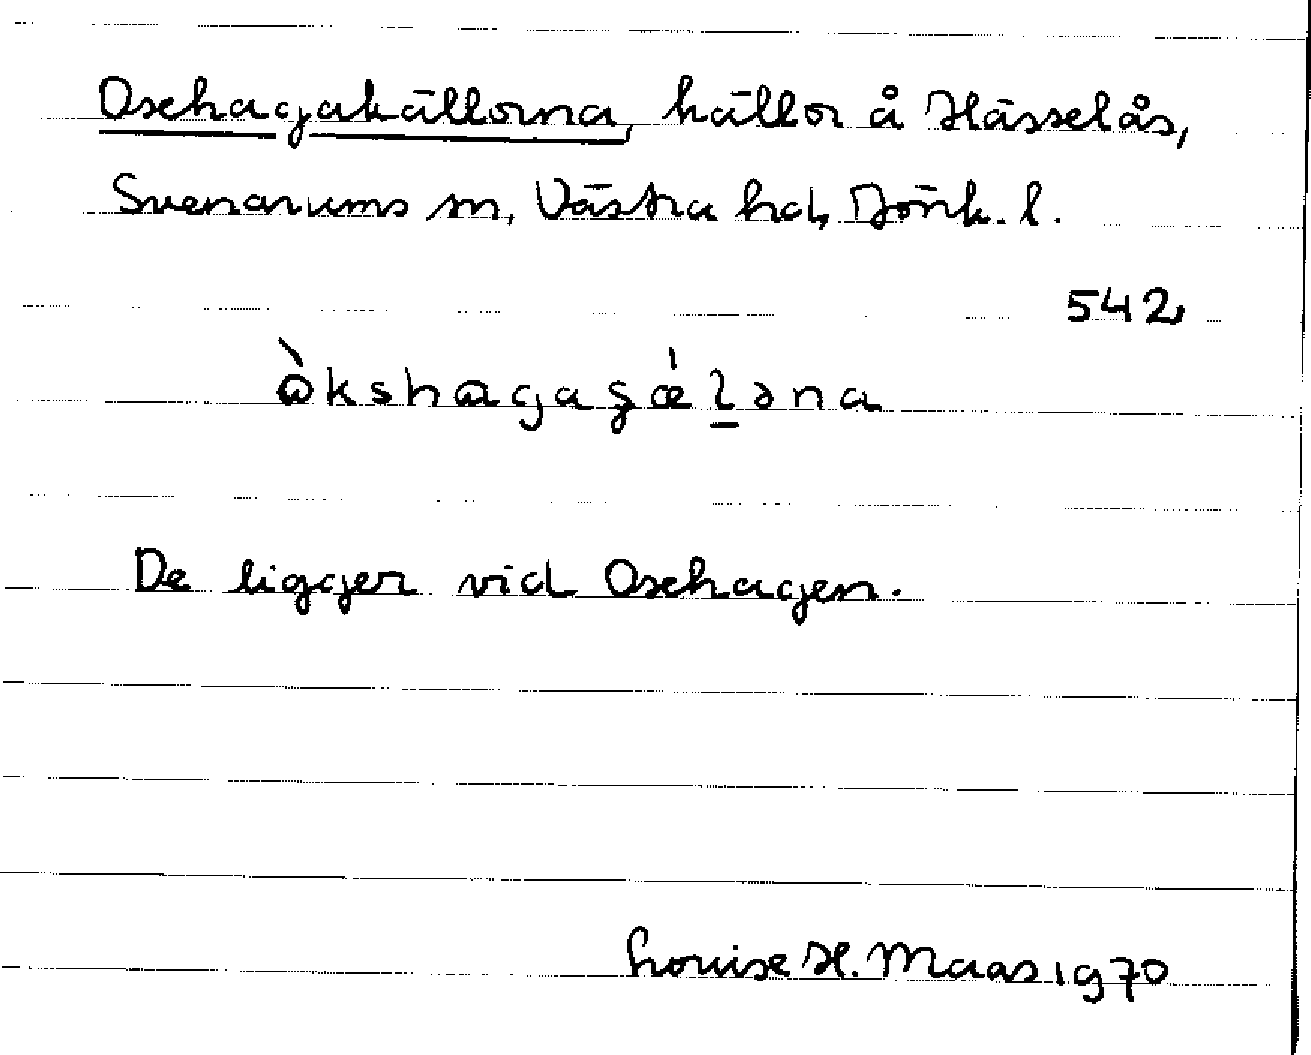 Oxehagakällorna, källor å Hässelås,
Svenarums sn, Västra hd, Jönk. l.
542
òkshagaşǽlǝna
De ligger vid Oxehagen.
Louise H. Maas 1970